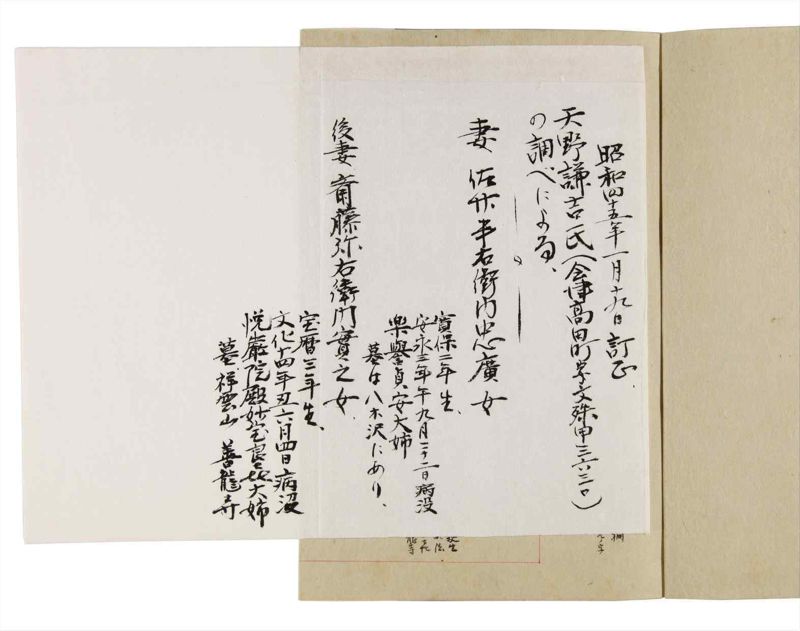 昭和四十五年一月十九日訂正
天野謙吉氏(会津高田町字文殊甲三六三〇)
の調べによる、
妻 佐竹半右衛門忠廣女
寛保二年生、
安永三年午九月二十二日病没
樂譽貞安大姉
墓は八木沢にあり、
後妻 斎藤弥右衛門實之女
宝暦三年生、
文化十四年丑六月四日病没
悦巌院殿妙宝良喜大姉
墓祥雲山 善龍寺